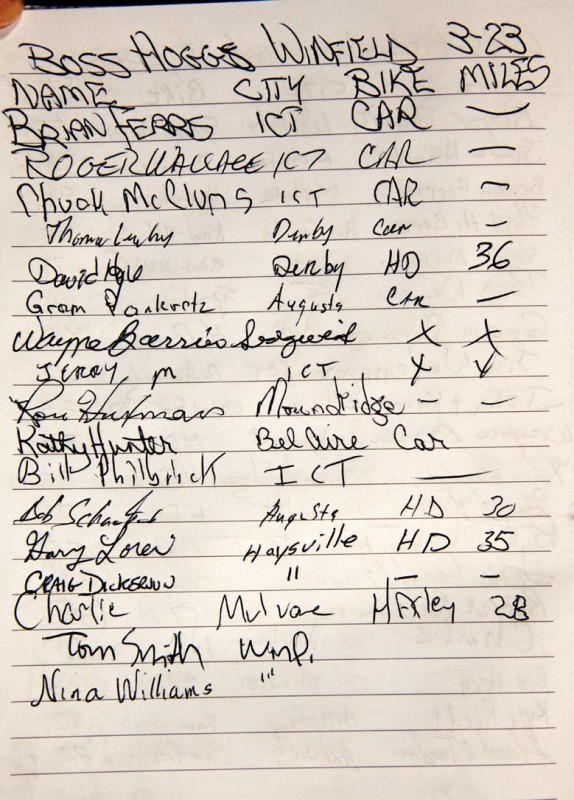 BOSS HOGGS WINFIELD 3-23
NAME CITY BIKE MILES
BRIAN FERRS ICT CAR —
ROGER WALLACE ICT CAR —
Chuck McClung ICT CAR —
Thomas Derby Car —
David Derby HD 36
Augusta CAR —
Wayne X X
JERRY M ICT X X
Ron Moundridge - -
Kathy Hunter Bel Aire Car
Bill Philbrick ICT —
Bob Augusta HD 30
Gary Loren Haysville HD 35
CRAIG DICKERSON " — —
Charlie Mulvane HArley 28
Tom Smith
Nina Williams "